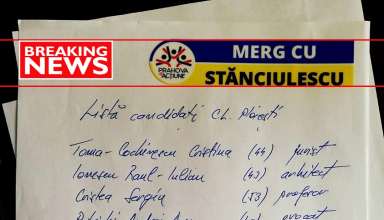 BREAKING
NEWS
PRAHOVA
ÎN ACȚIUNE
MERG CU
STĂNCIULESCU
Listă candidați CL Ploiești
Toma-Cochinescu Cristina (44) jurist
Ionescu Raul-Iulian (43) arhitect
Cristea Sergiu (53) profesor
avocat